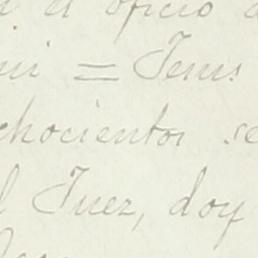 el oficio
= Jesus
chocientos se
l Juez, doy